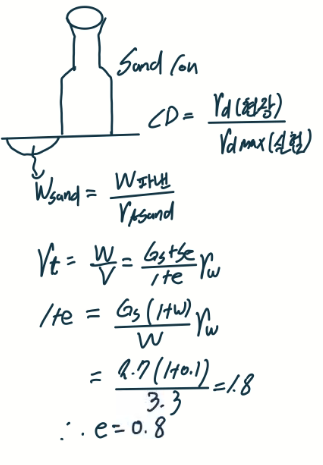 Sand Con
CD = γd(현장) / γdmax(실험)
Wsand = W파낸 / γsand
γt = W/V = Gs+Se / 1+e γw
1+e = Gs(1+w) / W γw
= 2.7(1+0.1) / 3.3 = 1.8
∴ e = 0.8